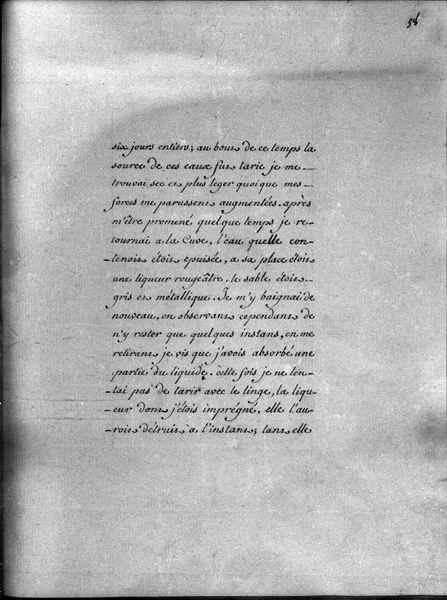 58
six jours entiers; au bout de ce temps la
source de ces eaux fut tarie je me
trouvai sec et plus leger quoique mes
forces me parussent augmentées. après
m'être promené quelque temps je re-
tournai a la Cuve, l'eau quelle con-
tenoit étoit épuisée, a sa place étoit
une liqueur rougeâtre. le sable étoit
gris et métallique. Je m'y baignai de
nouveau, en observant cependant de
n'y rester que quelques instans, en me
retirant je vis que j'avois absorbé une
partie du liquide. cette fois je ne ten-
tai pas de tarir avec le linge, la liqu-
eur dont j'étois imprégné, elle l'au-
roit détruit a l'instant; tant elle